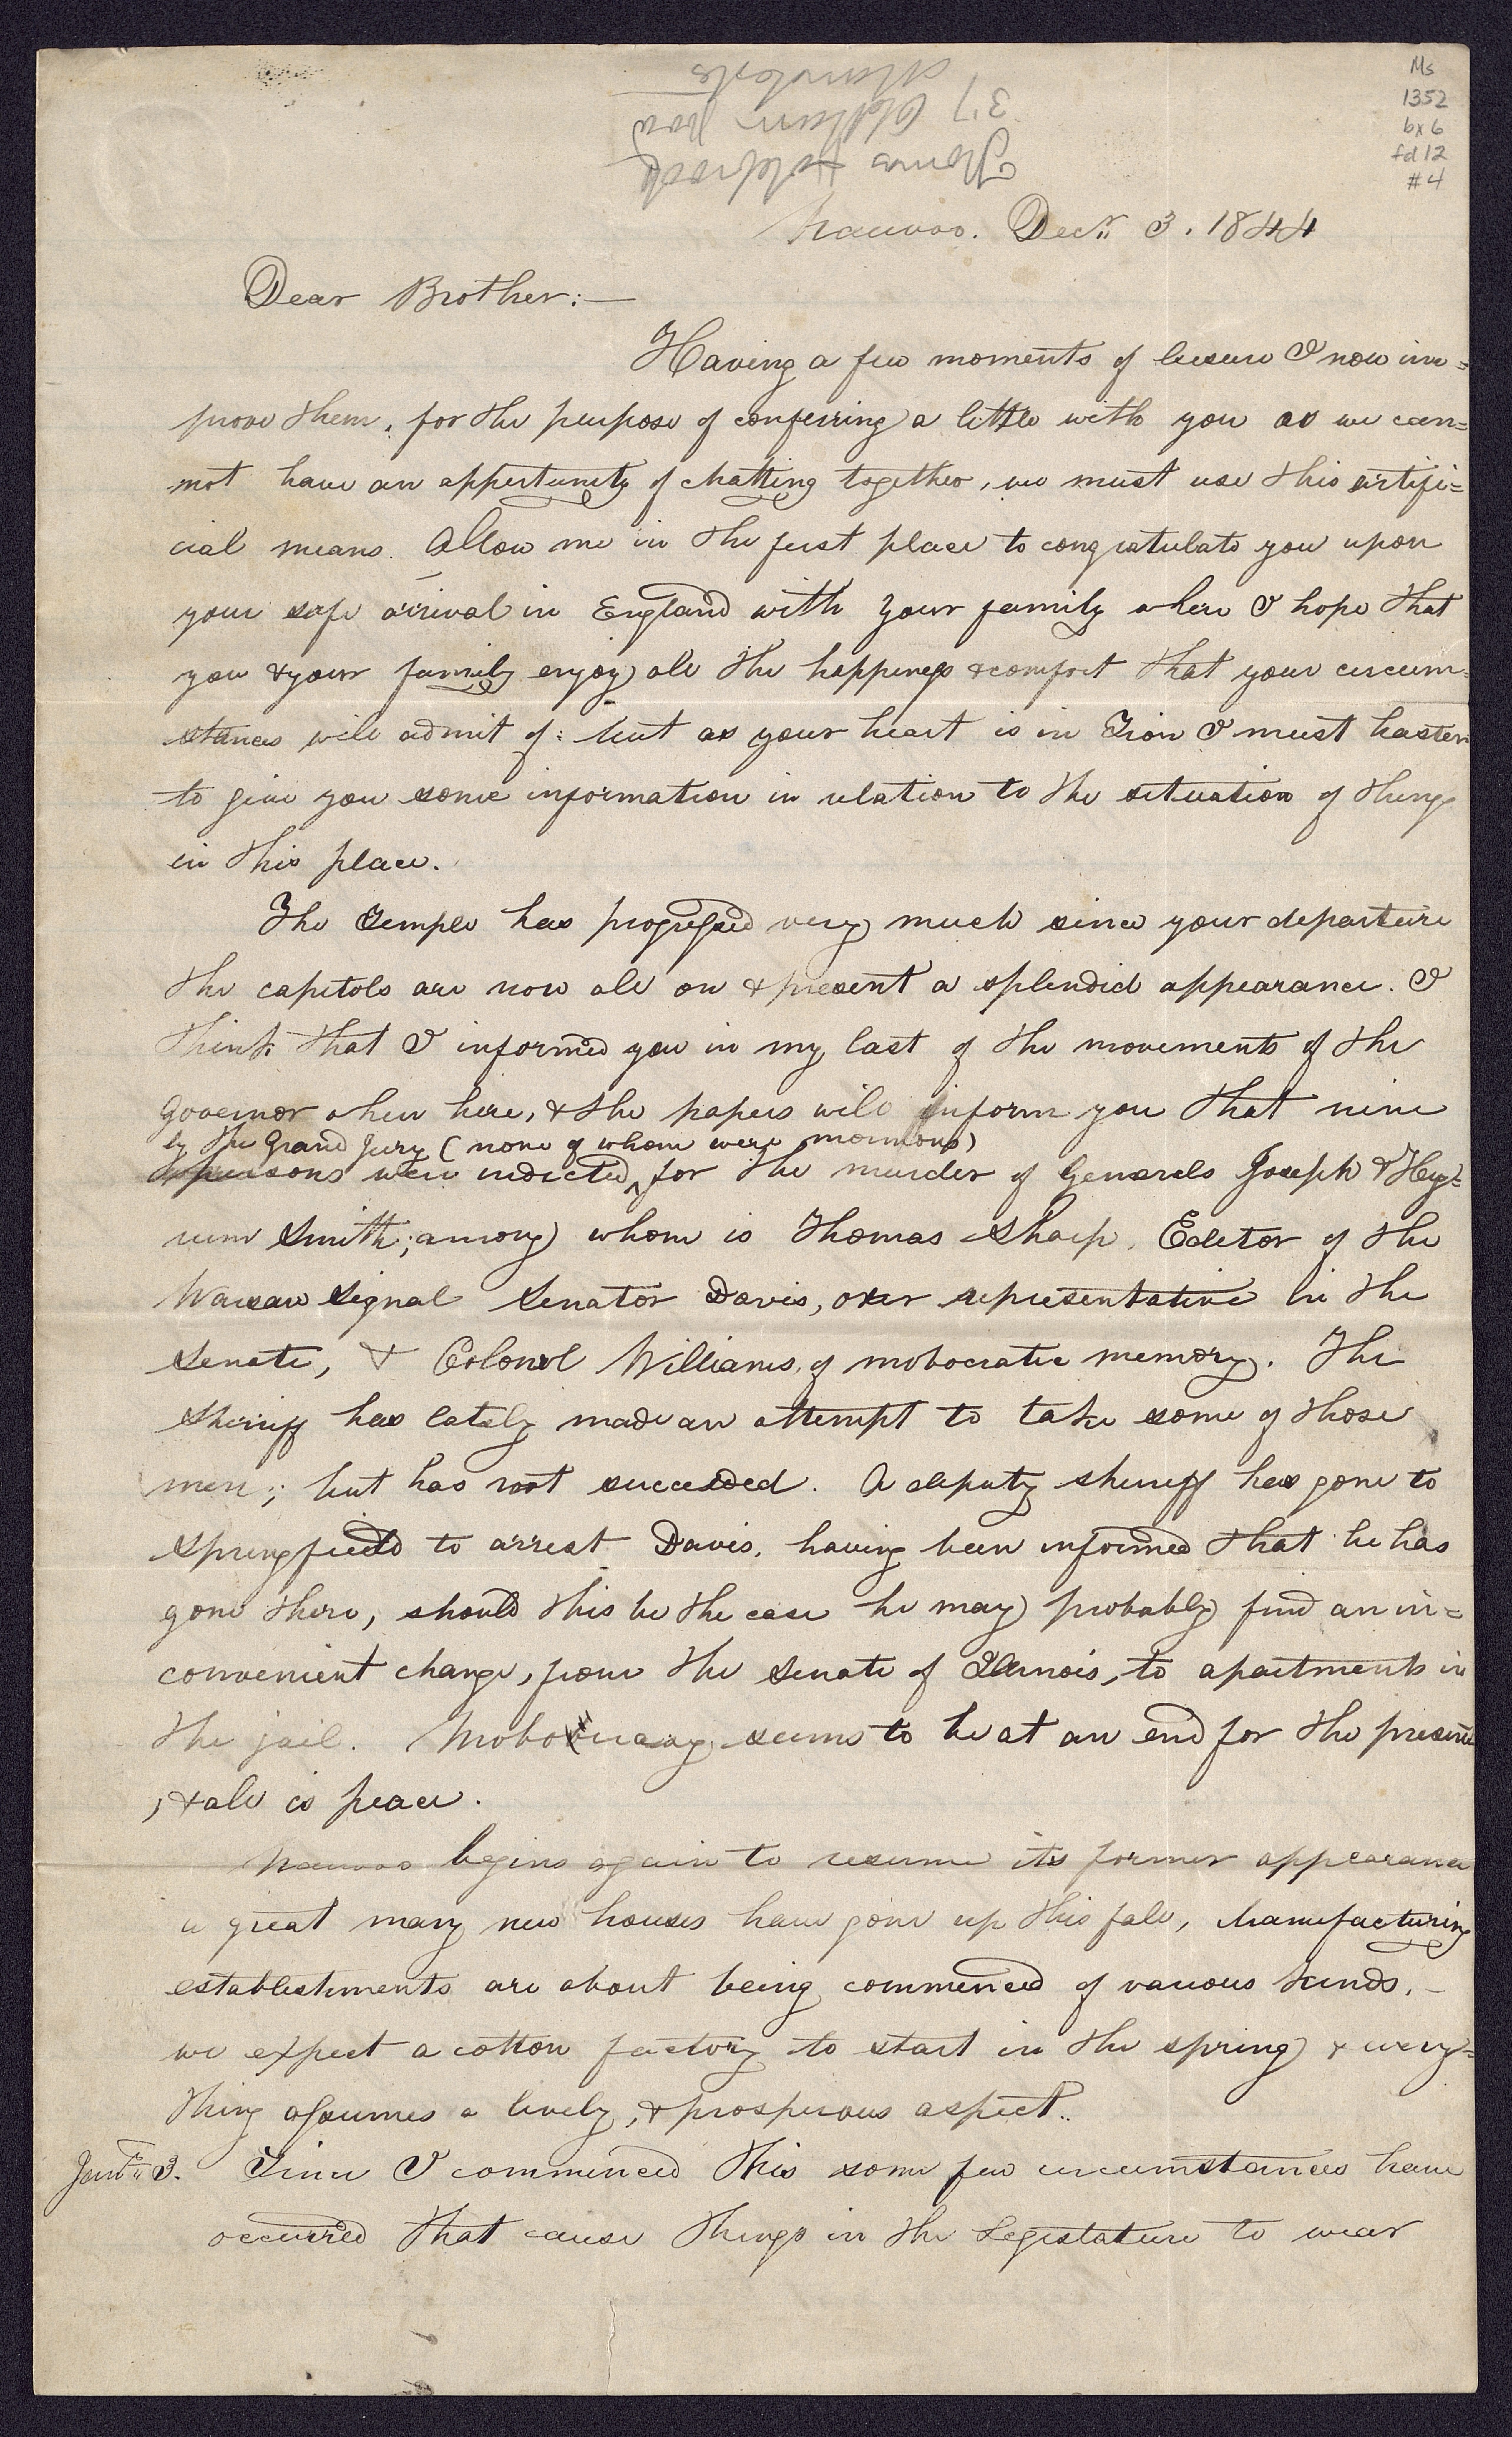 Ms
1352
bx 6
fd 12
#4
Thomas Holbrook
37 Oldham Road
Manchester
Nauvoo. Decr. 3. 1844
Dear Brother:—
Having a few moments of leisure I now im=
prove them, for the purpose of conferring a little with you as we can=
not have an oppertunity of chatting together, we must use this artifi=
cial means. Allow me in the first place to congratulate you upon
your safe arrival in England with your family where I hope that
you & your family enjoy all the happiness & comfort that your circum=
stances will admit of: but as your heart is in Zion I must hasten
to give you some information in relation to the situation of things
in this place.
The Temple has progressed very much since your departure
the capitols are now all on & present a splendid appearance. I
think that I informed you in my last of the movements of the
Governor when here, & the papers will inform you that nine
by the Grand Jury (none of whom were mormons)
persons were indicted ^ for the murder of Generals Joseph & Hy=
rum Smith; among whom is Thomas Sharp, Editor of the
Warsaw Signal Senator Davis, our representative in the
Senate, & Colonel Williams, of mobocratic memory. The
Sherriff has lately made an attempt to take some of those
men; but has not succeeded. A deputy sherriff has gone to
Springfield to arrest Davis, having been informed that he has
gone there, should this be the case he may probably find an in=
convenient change, from the Senate of Illinois, to apartments in
the jail. Mobocracy seems to be at an end for the present
, & all is peace.
Nauvoo begins again to resume its former appearance
a great many new houses have gone up this fall, Manufacturing
establishments are about being commenced of various kinds,—
we expect a cotton factory to start in the spring & every=
thing assumes a lively, & prosperous aspect..
Jany. 3. Since I commenced this some few circumstances have
occurred that cause things in the Legislature to wear